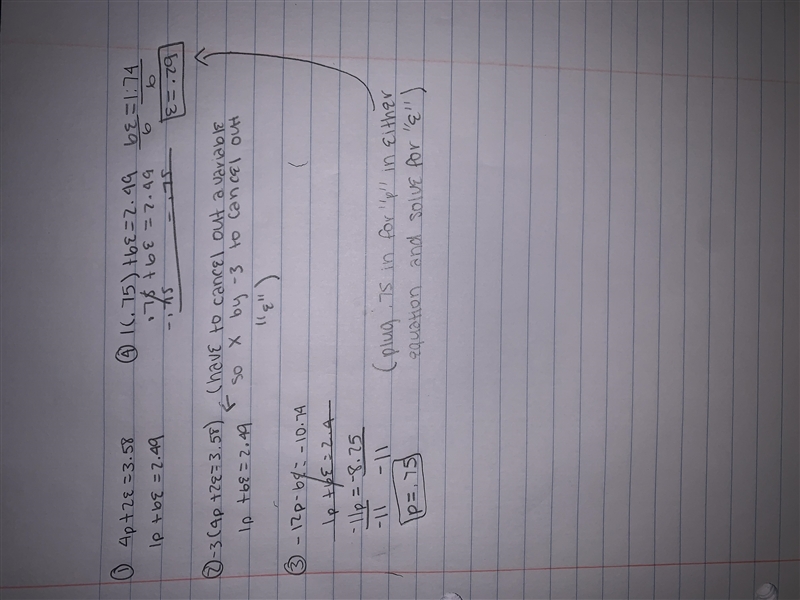 ① 4p+2ε=3.58
1p+6ε=2.49
② -3(4p+2ε=3.58) (have to cancel out a variable
1p+6ε=2.49 so x by -3 to cancel out
"ε")
③ -12p-6ε=-10.74
1p+6ε=2.4
-11p=-8.25
-11 -11
p=.75
(plug .75 in for "p" in either
equation and solve for "ε")
④ 1(.75)+6ε=2.49
.75+6ε=2.49
-.75 = .75
6ε=1.74
6 6
ε=.29